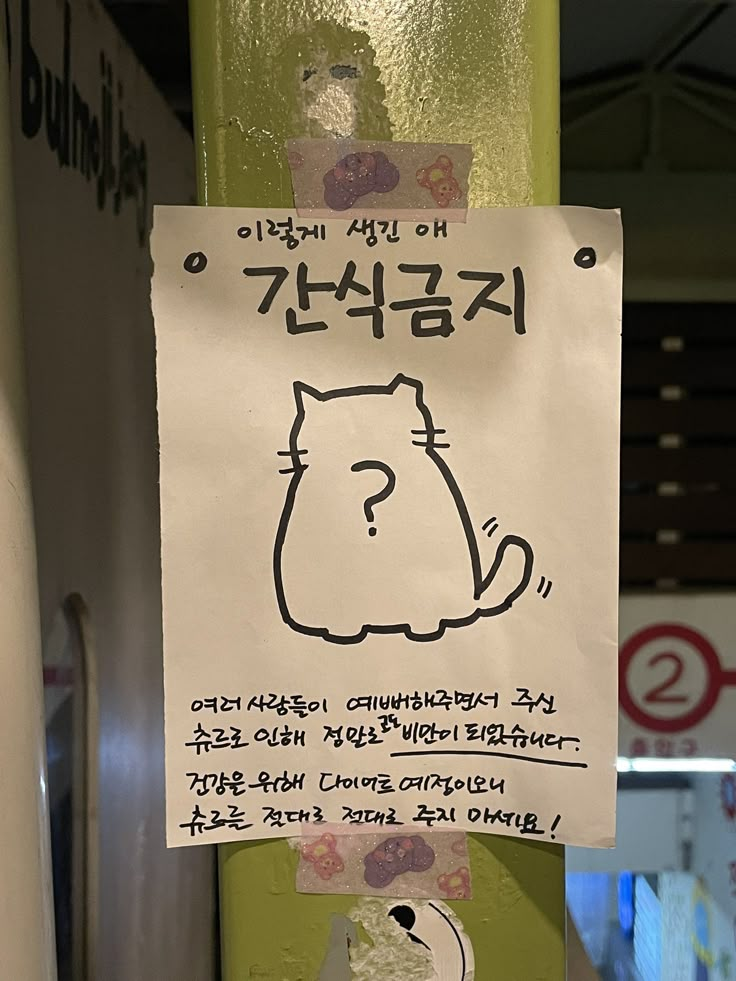 bulmeji jang
이렇게 생긴 애
간식금지
?
여러 사람들이 예뻐해주면서 주신
츄르로 인해 정말로 고도비만이 되었습니다.
건강을 위해 다이어트 예정이오니
츄르를 절대로 절대로 주지 마세요!
2
출입구